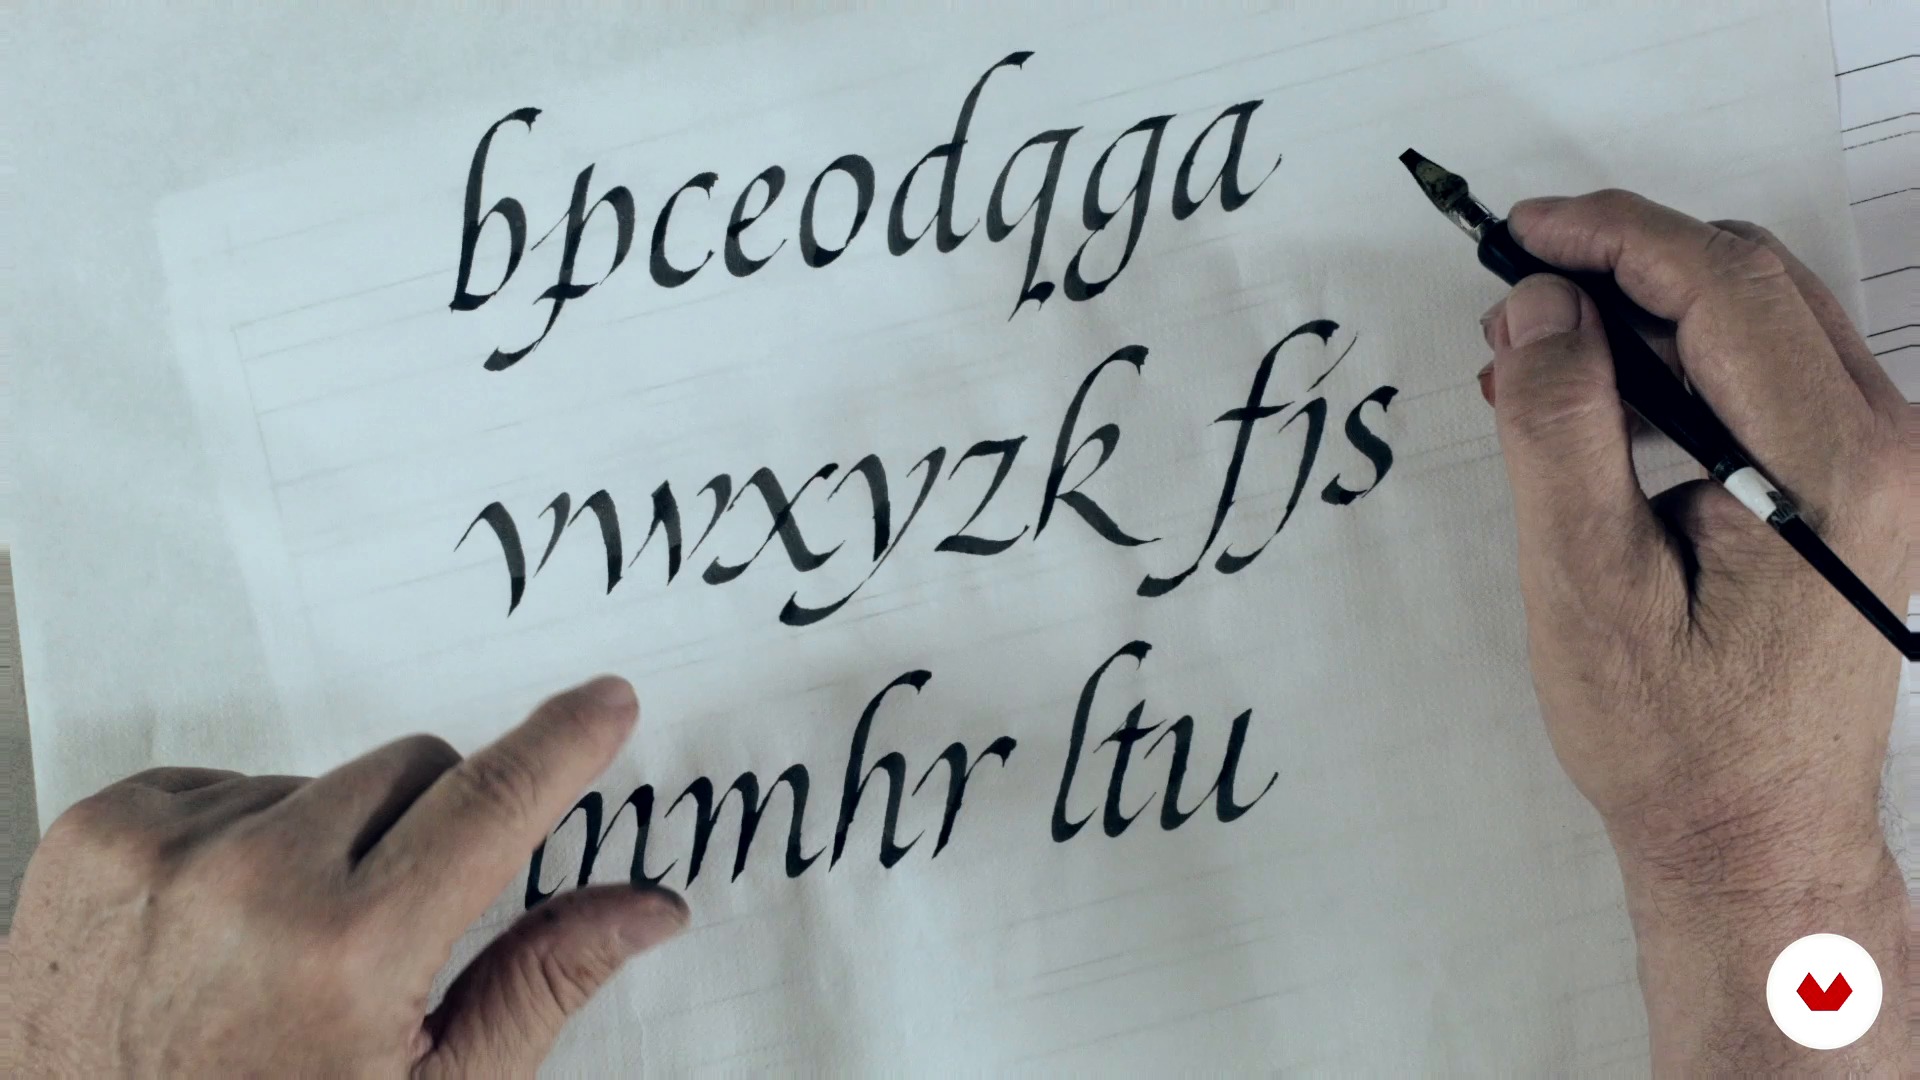 bpceodqga
vwxyzk fjs
inmhr ltu